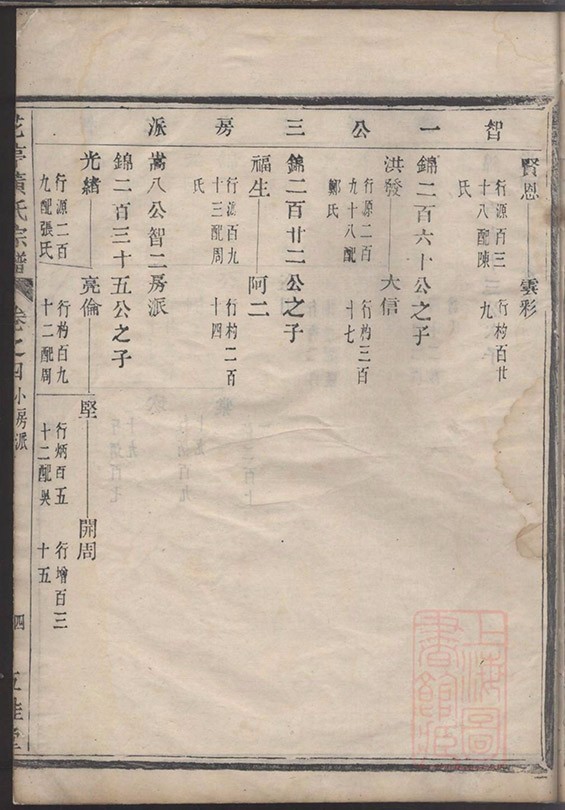 智一公三房派
賢恩 雲彩
行源百三 行杓百廿
十八配陳 九
氏
錦二百六十公之子
洪發 大信
行源二百 行杓三百
九十八配 十七
鄭氏
錦二百廿二公之子
福生 阿二
行源百九 行杓二百
十三配周 十四
氏
嵩八公智二房派
錦二百三十五公之子
光緒 亮倫 堅 開周
行源二百 行杓百九 行炳百五 行增百三
九配張氏 十二配周 十二配吳 十五
黃氏宗譜 卷之四 小房派 四
上海圖書館藏